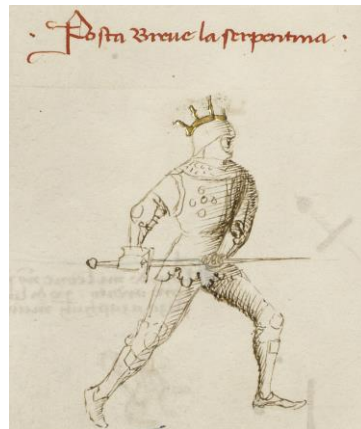 · Posta Breve la serpentina ·